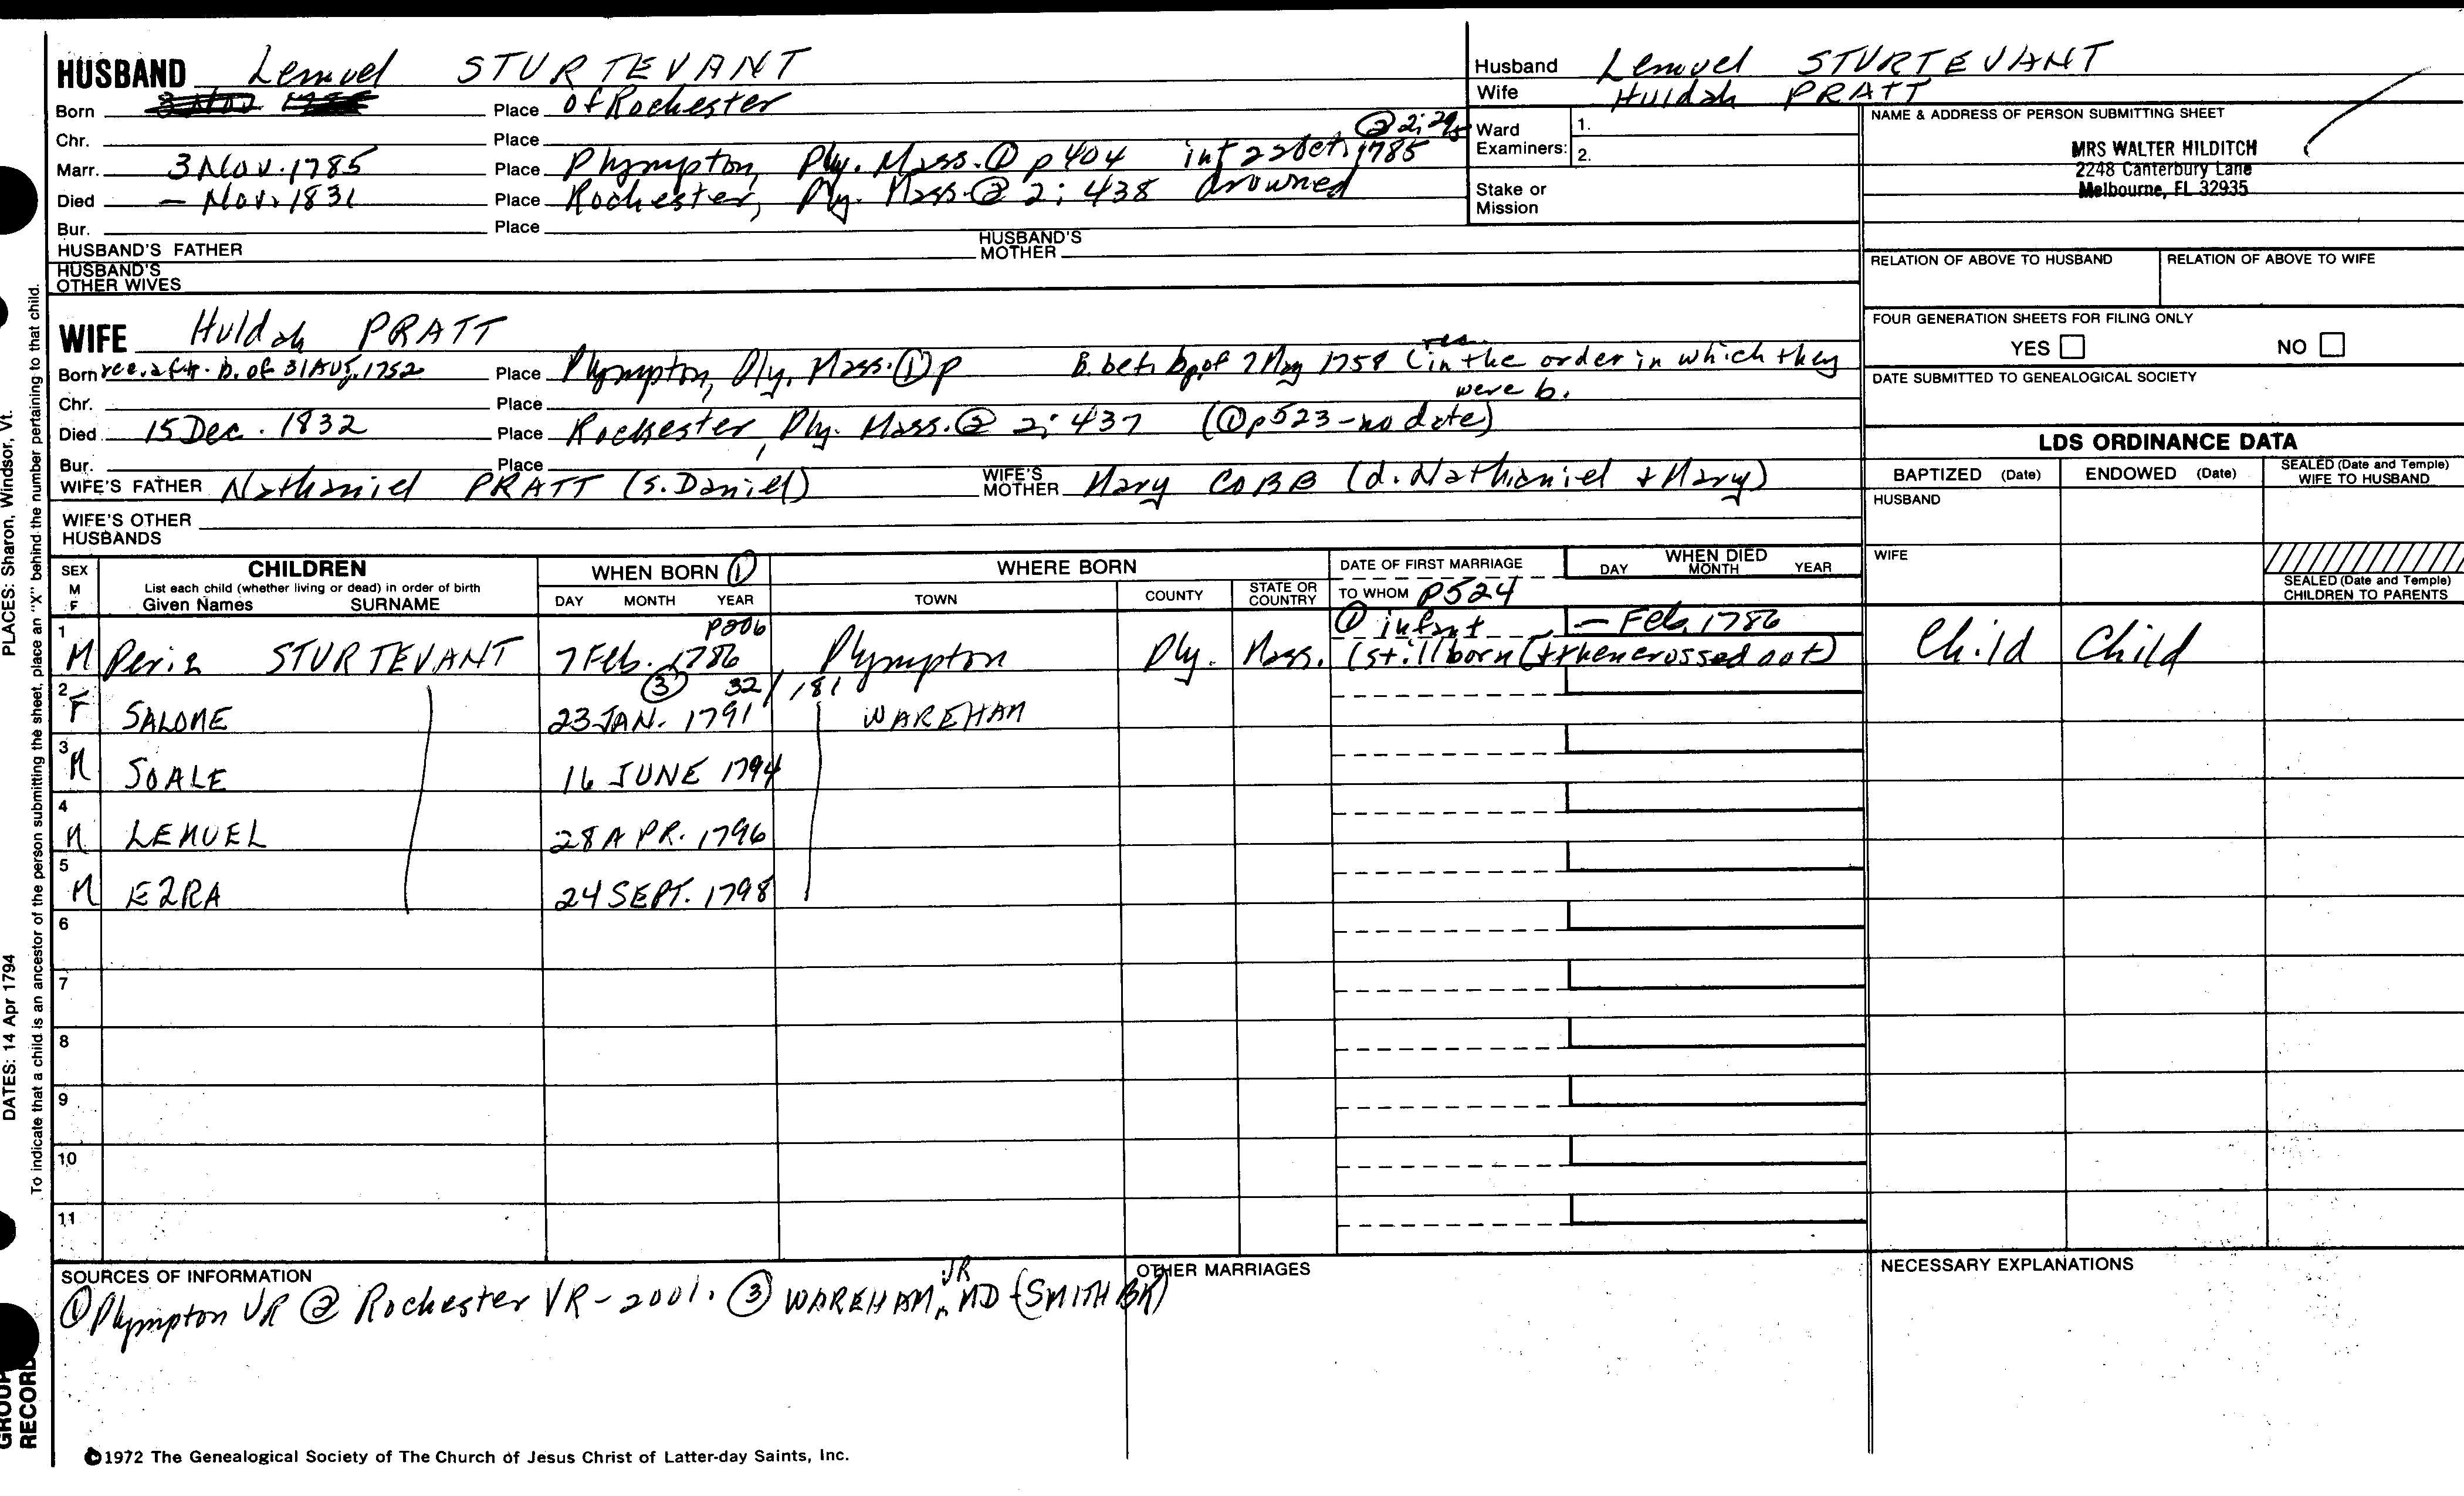 HUSBAND Lemuel STURTEVANT
Born 3 Nov Place of Rochester
Chr. Place
Marr. 3 Nov. 1785 Place Plympton, Ply. Mass. ① p 404 int 22 Oct. 1785 ② 2; 295
Died — Nov. 1831 Place Rochester, Ply. Mass. ② 2; 438 drowned
Bur. Place
HUSBAND'S FATHER HUSBAND'S MOTHER
HUSBAND'S OTHER WIVES
Husband Lemuel STURTEVANT
Wife Huldah PRATT
Ward Examiners: 1.
2.
Stake or Mission
NAME & ADDRESS OF PERSON SUBMITTING SHEET
MRS WALTER HILDITCH
2248 Canterbury Lane
Melbourne, FL 32935
RELATION OF ABOVE TO HUSBAND RELATION OF ABOVE TO WIFE
FOUR GENERATION SHEETS FOR FILING ONLY
YES NO
DATE SUBMITTED TO GENEALOGICAL SOCIETY
WIFE Huldah PRATT
Born rec. aft. b. of 31 Aug. 1752 Place Plympton, Ply. Mass. ① p B. bet. bp of 7 May 1758 (in the order in which they
rec.
were b.
Chr. Place
Died 15 Dec. 1832 Place Rochester, Ply. Mass. ② 2; 437 (① p523 - no date)
Bur. Place
WIFE'S FATHER Nathaniel PRATT (s. Daniel) WIFE'S MOTHER Mary COBB (d. Nathaniel + Mary)
WIFE'S OTHER HUSBANDS
LDS ORDINANCE DATA
BAPTIZED (Date) ENDOWED (Date) SEALED (Date and Temple) WIFE TO HUSBAND
HUSBAND
WIFE
SEALED (Date and Temple) CHILDREN TO PARENTS
SEX M F
CHILDREN
List each child (whether living or dead) in order of birth
Given Names SURNAME
WHEN BORN ①
DAY MONTH YEAR
WHERE BORN
TOWN COUNTY STATE OR COUNTRY
DATE OF FIRST MARRIAGE
TO WHOM p524
WHEN DIED
DAY MONTH YEAR
p206 ① infant — Feb. 1786
1 M Periz STURTEVANT 7 Feb. 1786 Plympton Ply. Mass. (stillborn (+ then crossed out) Child Child
③ 32/181
2 F SALOME 23 JAN. 1791 WAREHAM
3 M SOALE 16 JUNE 1794
4 M LEMUEL 28 APR. 1796
5 M EZRA 24 SEPT. 1798
6
7
8
9
10
11
SOURCES OF INFORMATION
① Plympton VR ② Rochester VR - 2001. ③ WAREHAM, VR MD (SMITH BK)
OTHER MARRIAGES
NECESSARY EXPLANATIONS
©1972 The Genealogical Society of The Church of Jesus Christ of Latter-day Saints, Inc.
PLACES: Sharon, Windsor, Vt.
DATES: 14 Apr 1794
To indicate that a child is an ancestor of the person submitting the sheet, place an "X" behind the number pertaining to that child.
GROUP
RECORD